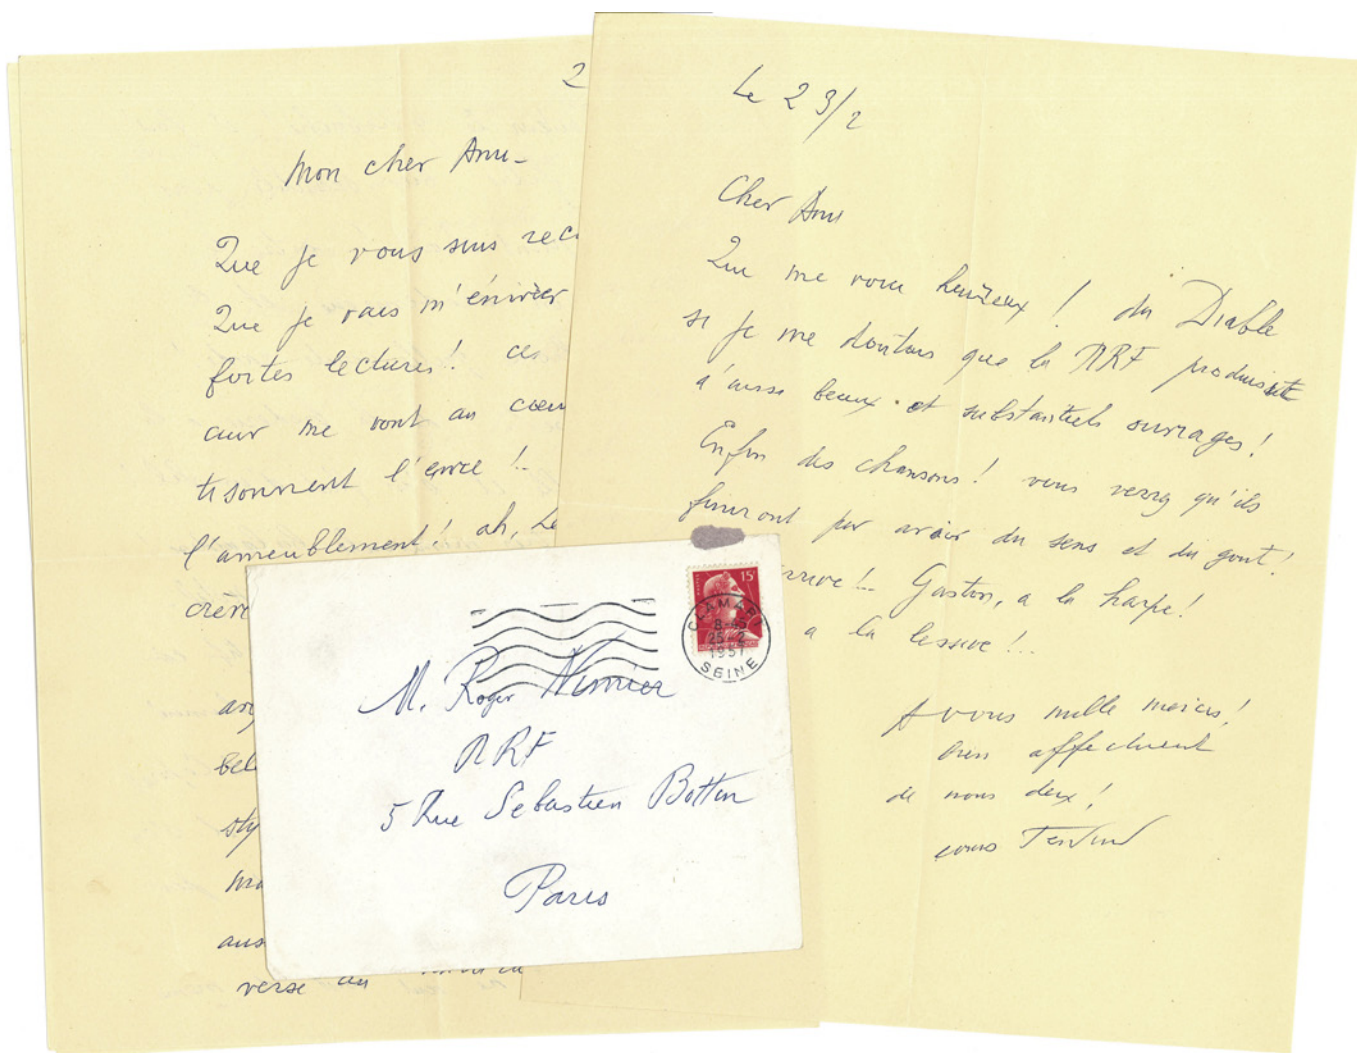 2
Mon cher Ami-
Que je vous suis reco
Que je vais m'enivrer
fortes lectures! ces
cuir me vont au cœur
tisonnent l'envie !..
l'ameublement! ah, Le
crève
arg
bel
sty
ma
aus
verse au
Le 23/2
Cher Ami
Que me voici heureux ! du Diable
si je me doutais que la NRF produisit
d'aussi beaux et substantiels ouvrages!
Enfin des chansons! vous verrez qu'ils
finiront par avoir du sens et du gout!
arrive !.. Gaston, a la harpe!
a la lessive !..
A vous mille mercis!
bien affectueusement
de nous deux !
15F
CLAMART
8-45
25-2
1957
SEINE
M. Roger Nimier
NRF
5 Rue Sebastien Bottin
Paris